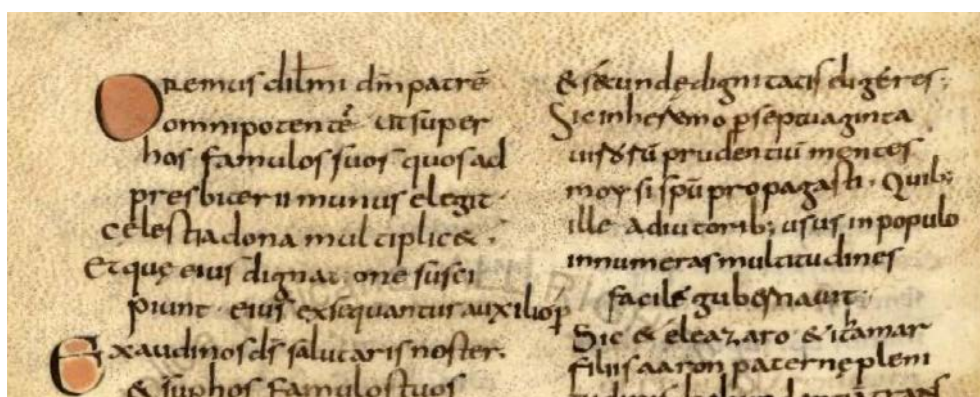 Oremus dilmi dm patrē
omnipotentē ut super
hos famulos suos quos ad
presbiterii munus elegit·
cęlestia dona multiplic&·
Et quę eius dignatione susci
piunt· eius exsequantur auxilio p
Exaudi nos ds salutaris noster·
& sup hos famulos tuos
& secunde dignitatis eligeres;
Sic in heremo p septuaginta
uirorū prudentiū mentes
moysi spū propagasti· Quib;
ille adiutorib; usus in populo
innumeras multitudines
facile gubernauit·
Sic & eleazaro & ithamar
filiis aaron paternę pleni